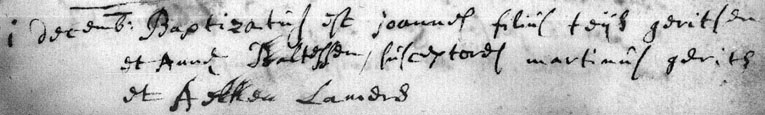 i decemb: Baptizatus est joannes filius teijs geritsen
et Annæ Baltessen, susceptores martinus gerits
et Aelken Lamers